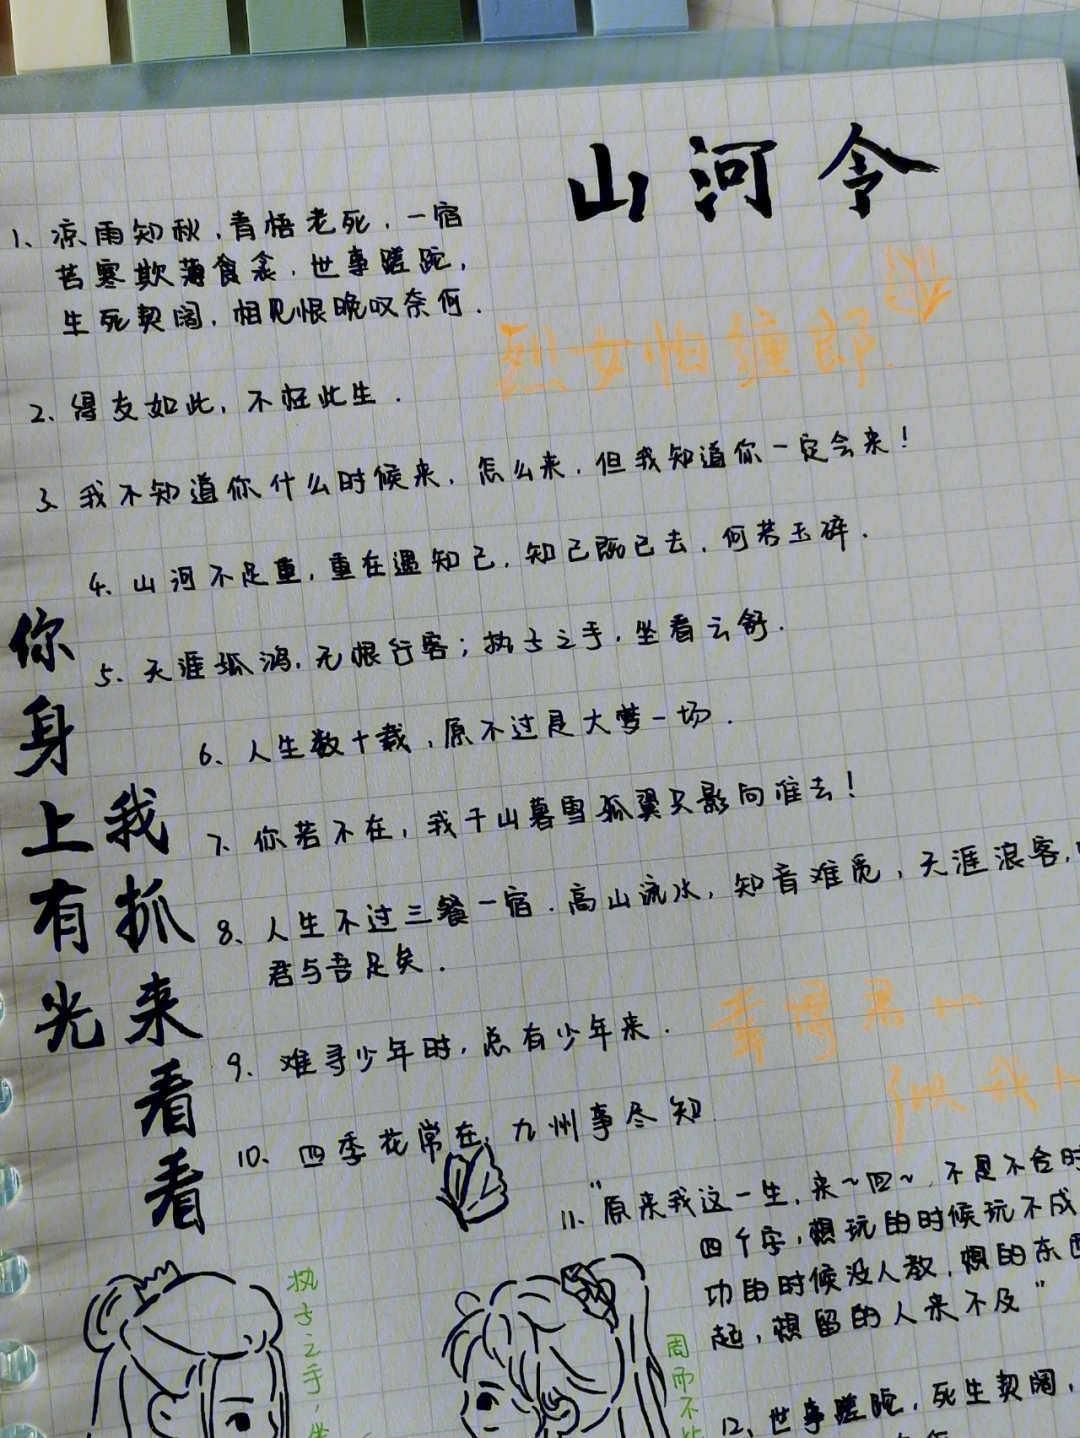 山河令
1、凉雨知秋,青梧老死,一宿
苦寒欺薄食衾,世事蹉跎,
生死契阔,相见恨晚叹奈何.
烈女怕缠郎.
2、得友如此,不枉此生.
3、我不知道你什么时候来,怎么来,但我知道你一定会来!
4、山河不足重,重在遇知己,知己既已去,何若玉碎.
5、天涯孤鸿,无恨行客;执子之手,坐看云舒.
6、人生数十载,原不过是大梦一场.
7、你若不在,我千山暮雪孤翼只影向谁去!
8、人生不过三餐一宿.高山流水,知音难觅,天涯浪客,
君与吾足矣.
9、难寻少年时,总有少年来.
幸得君心
似我心
10、四季花常在,九州事尽知
11、"原来我这一生,来~回~,不是不合时
四个字,想玩的时候玩不成
功的时候没人教,想的东西
起,想留的人来不及"
12、世事蹉跎,死生契阔,
你身上有光
我抓来看看
执子之手,坐
周而不比